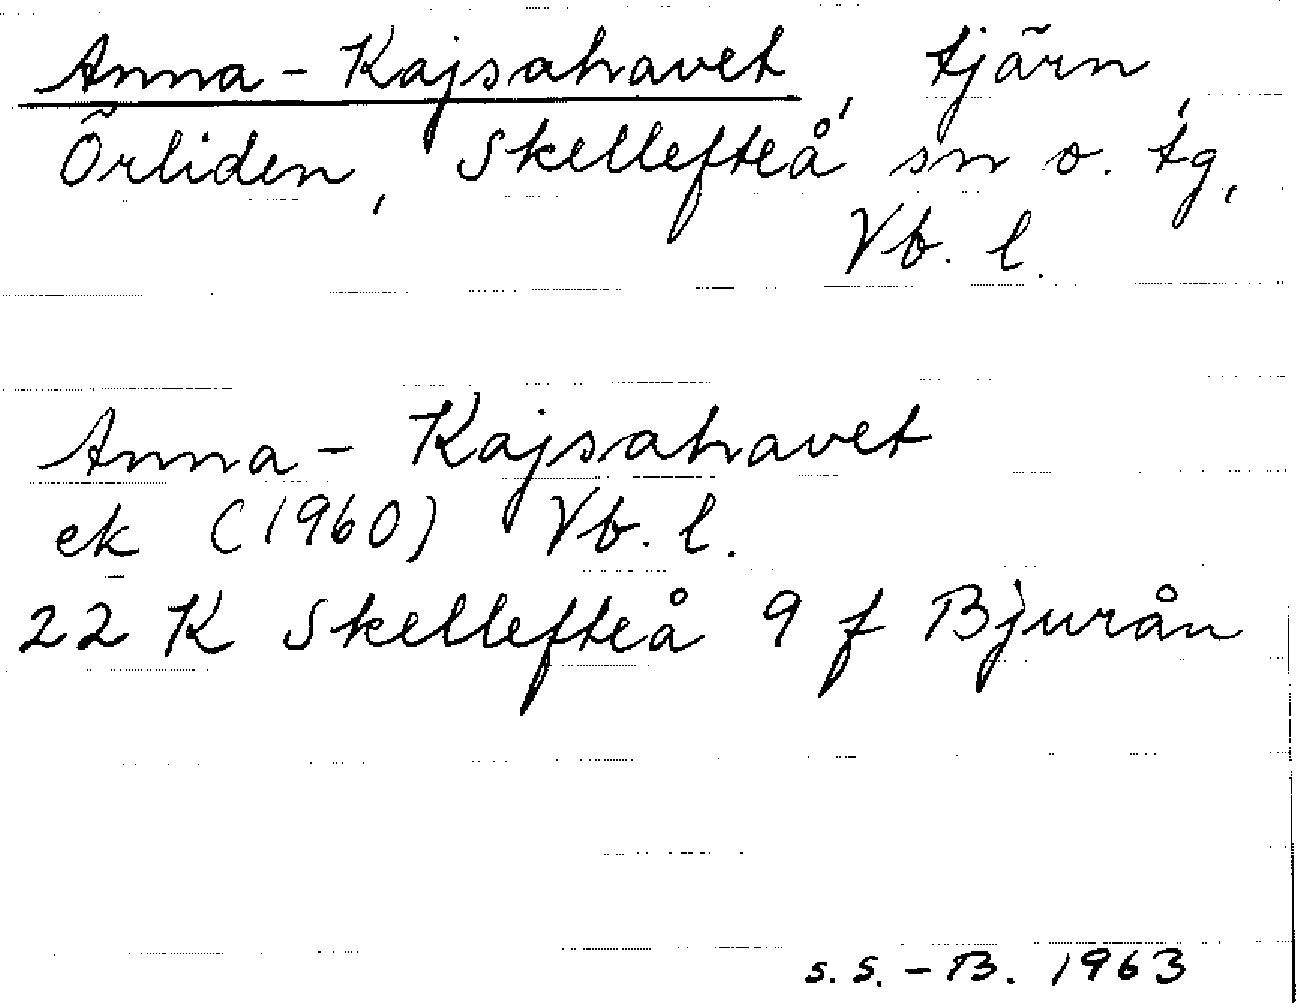 Anna-Kajsahavet, tjärn,
Örliden, Skellefteå sn o. tg,
Vb. l.
Anna-Kajsahavet
ek (1960) Vb. l.
22 K Skellefteå 9 f Bjurån
s.s.-B. 1963